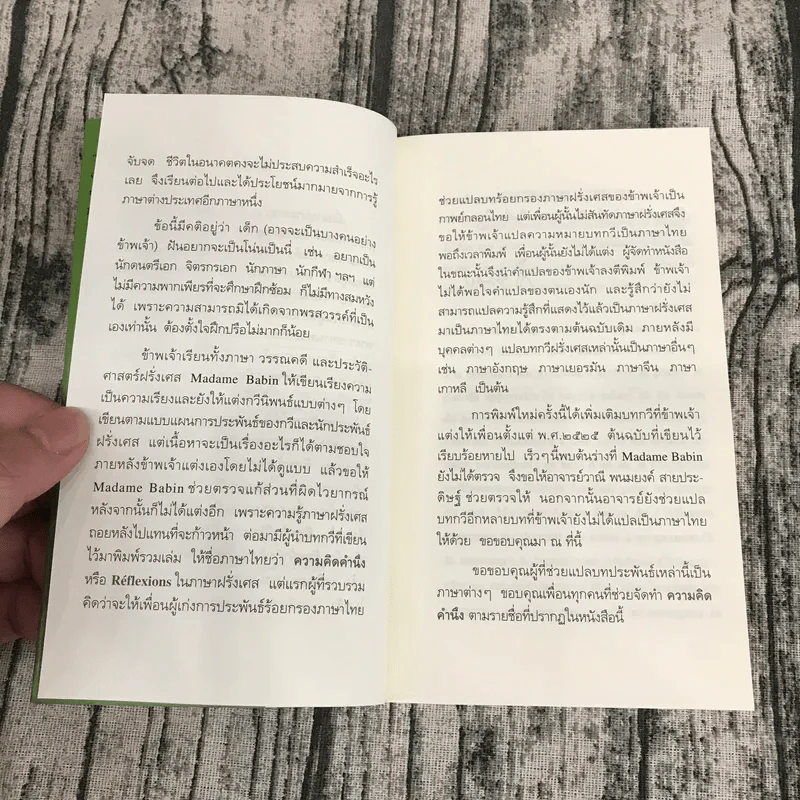 จับจด ชีวิตในอนาคตคงจะไม่ประสบความสำเร็จอะไร
เลย จึงเรียนต่อไปและได้ประโยชน์มากมายจากการรู้
ภาษาต่างประเทศอีกภาษาหนึ่ง
ข้อนี้มีคติอยู่ว่า เด็ก (อาจจะเป็นบางคนอย่าง
ข้าพเจ้า) ฝันอยากจะเป็นโน่นเป็นนี่ เช่น อยากเป็น
นักดนตรีเอก จิตรกรเอก นักภาษา นักกีฬา ฯลฯ แต่
ไม่มีความพากเพียรที่จะศึกษาฝึกซ้อม ก็ไม่มีทางสมหวัง
ได้ เพราะความสามารถมิได้เกิดจากพรสวรรค์ที่เป็น
เองเท่านั้น ต้องตั้งใจฝึกปรือไม่มากก็น้อย
ข้าพเจ้าเรียนทั้งภาษา วรรณคดี และประวัติ-
ศาสตร์ฝรั่งเศส Madame Babin ให้เขียนเรียงความ
เป็นความเรียงและยังให้แต่งกวีนิพนธ์แบบต่างๆ โดย
เขียนตามแบบแผนการประพันธ์ของกวีและนักประพันธ์
ฝรั่งเศส แต่เนื้อหาจะเป็นเรื่องอะไรก็ได้ตามชอบใจ
ภายหลังข้าพเจ้าแต่งเองโดยไม่ได้ดูแบบ แล้วขอให้
Madame Babin ช่วยตรวจแก้ส่วนที่ผิดไวยากรณ์
หลังจากนั้นก็ไม่ได้แต่งอีก เพราะความรู้ภาษาฝรั่งเศส
ถอยหลังไปแทนที่จะก้าวหน้า ต่อมามีผู้นำบทกวีที่เขียน
ไว้มาพิมพ์รวมเล่ม ให้ชื่อภาษาไทยว่า ความคิดคำนึง
หรือ Réflexions ในภาษาฝรั่งเศส แต่แรกผู้ที่รวบรวม
คิดว่าจะให้เพื่อนผู้เก่งการประพันธ์ร้อยกรองภาษาไทย
ช่วยแปลบทร้อยกรองภาษาฝรั่งเศสของข้าพเจ้าเป็น
กาพย์กลอนไทย แต่เพื่อนผู้นั้นไม่สันทัดภาษาฝรั่งเศสจึง
ขอให้ข้าพเจ้าแปลความหมายบทกวีเป็นภาษาไทย
พอถึงเวลาพิมพ์ เพื่อนผู้นั้นยังไม่ได้แต่ง ผู้จัดทำหนังสือ
ในขณะนั้นจึงนำคำแปลของข้าพเจ้าลงตีพิมพ์ ข้าพเจ้า
ไม่ได้พอใจคำแปลของตนเองนัก และรู้สึกว่ายังไม่
สามารถแปลความรู้สึกที่แสดงไว้แล้วเป็นภาษาฝรั่งเศส
มาเป็นภาษาไทยได้ตรงตามต้นฉบับเดิม ภายหลังมี
บุคคลต่างๆ แปลบทกวีฝรั่งเศสเหล่านั้นเป็นภาษาอื่นๆ
เช่น ภาษาอังกฤษ ภาษาเยอรมัน ภาษาจีน ภาษา
เกาหลี เป็นต้น
การพิมพ์ใหม่ครั้งนี้ได้เพิ่มเติมบทกวีที่ข้าพเจ้า
แต่งให้เพื่อนตั้งแต่ พ.ศ.๒๕๒๕ ต้นฉบับที่เขียนไว้
เรียบร้อยหายไป เร็วๆ นี้พบต้นร่างที่ Madame Babin
ยังไม่ได้ตรวจ จึงขอให้อาจารย์วาณี พนมยงค์ สายประ-
ดิษฐ์ ช่วยตรวจให้ นอกจากนั้นอาจารย์ยังช่วยแปล
บทกวีอีกหลายบทที่ข้าพเจ้ายังไม่ได้แปลเป็นภาษาไทย
ให้ด้วย ขอขอบคุณมา ณ ที่นี้
ขอขอบคุณผู้ที่ช่วยแปลบทประพันธ์เหล่านี้เป็น
ภาษาต่างๆ ขอบคุณเพื่อนทุกคนที่ช่วยจัดทำ ความคิด
คำนึง ตามรายชื่อที่ปรากฏในหนังสือนี้